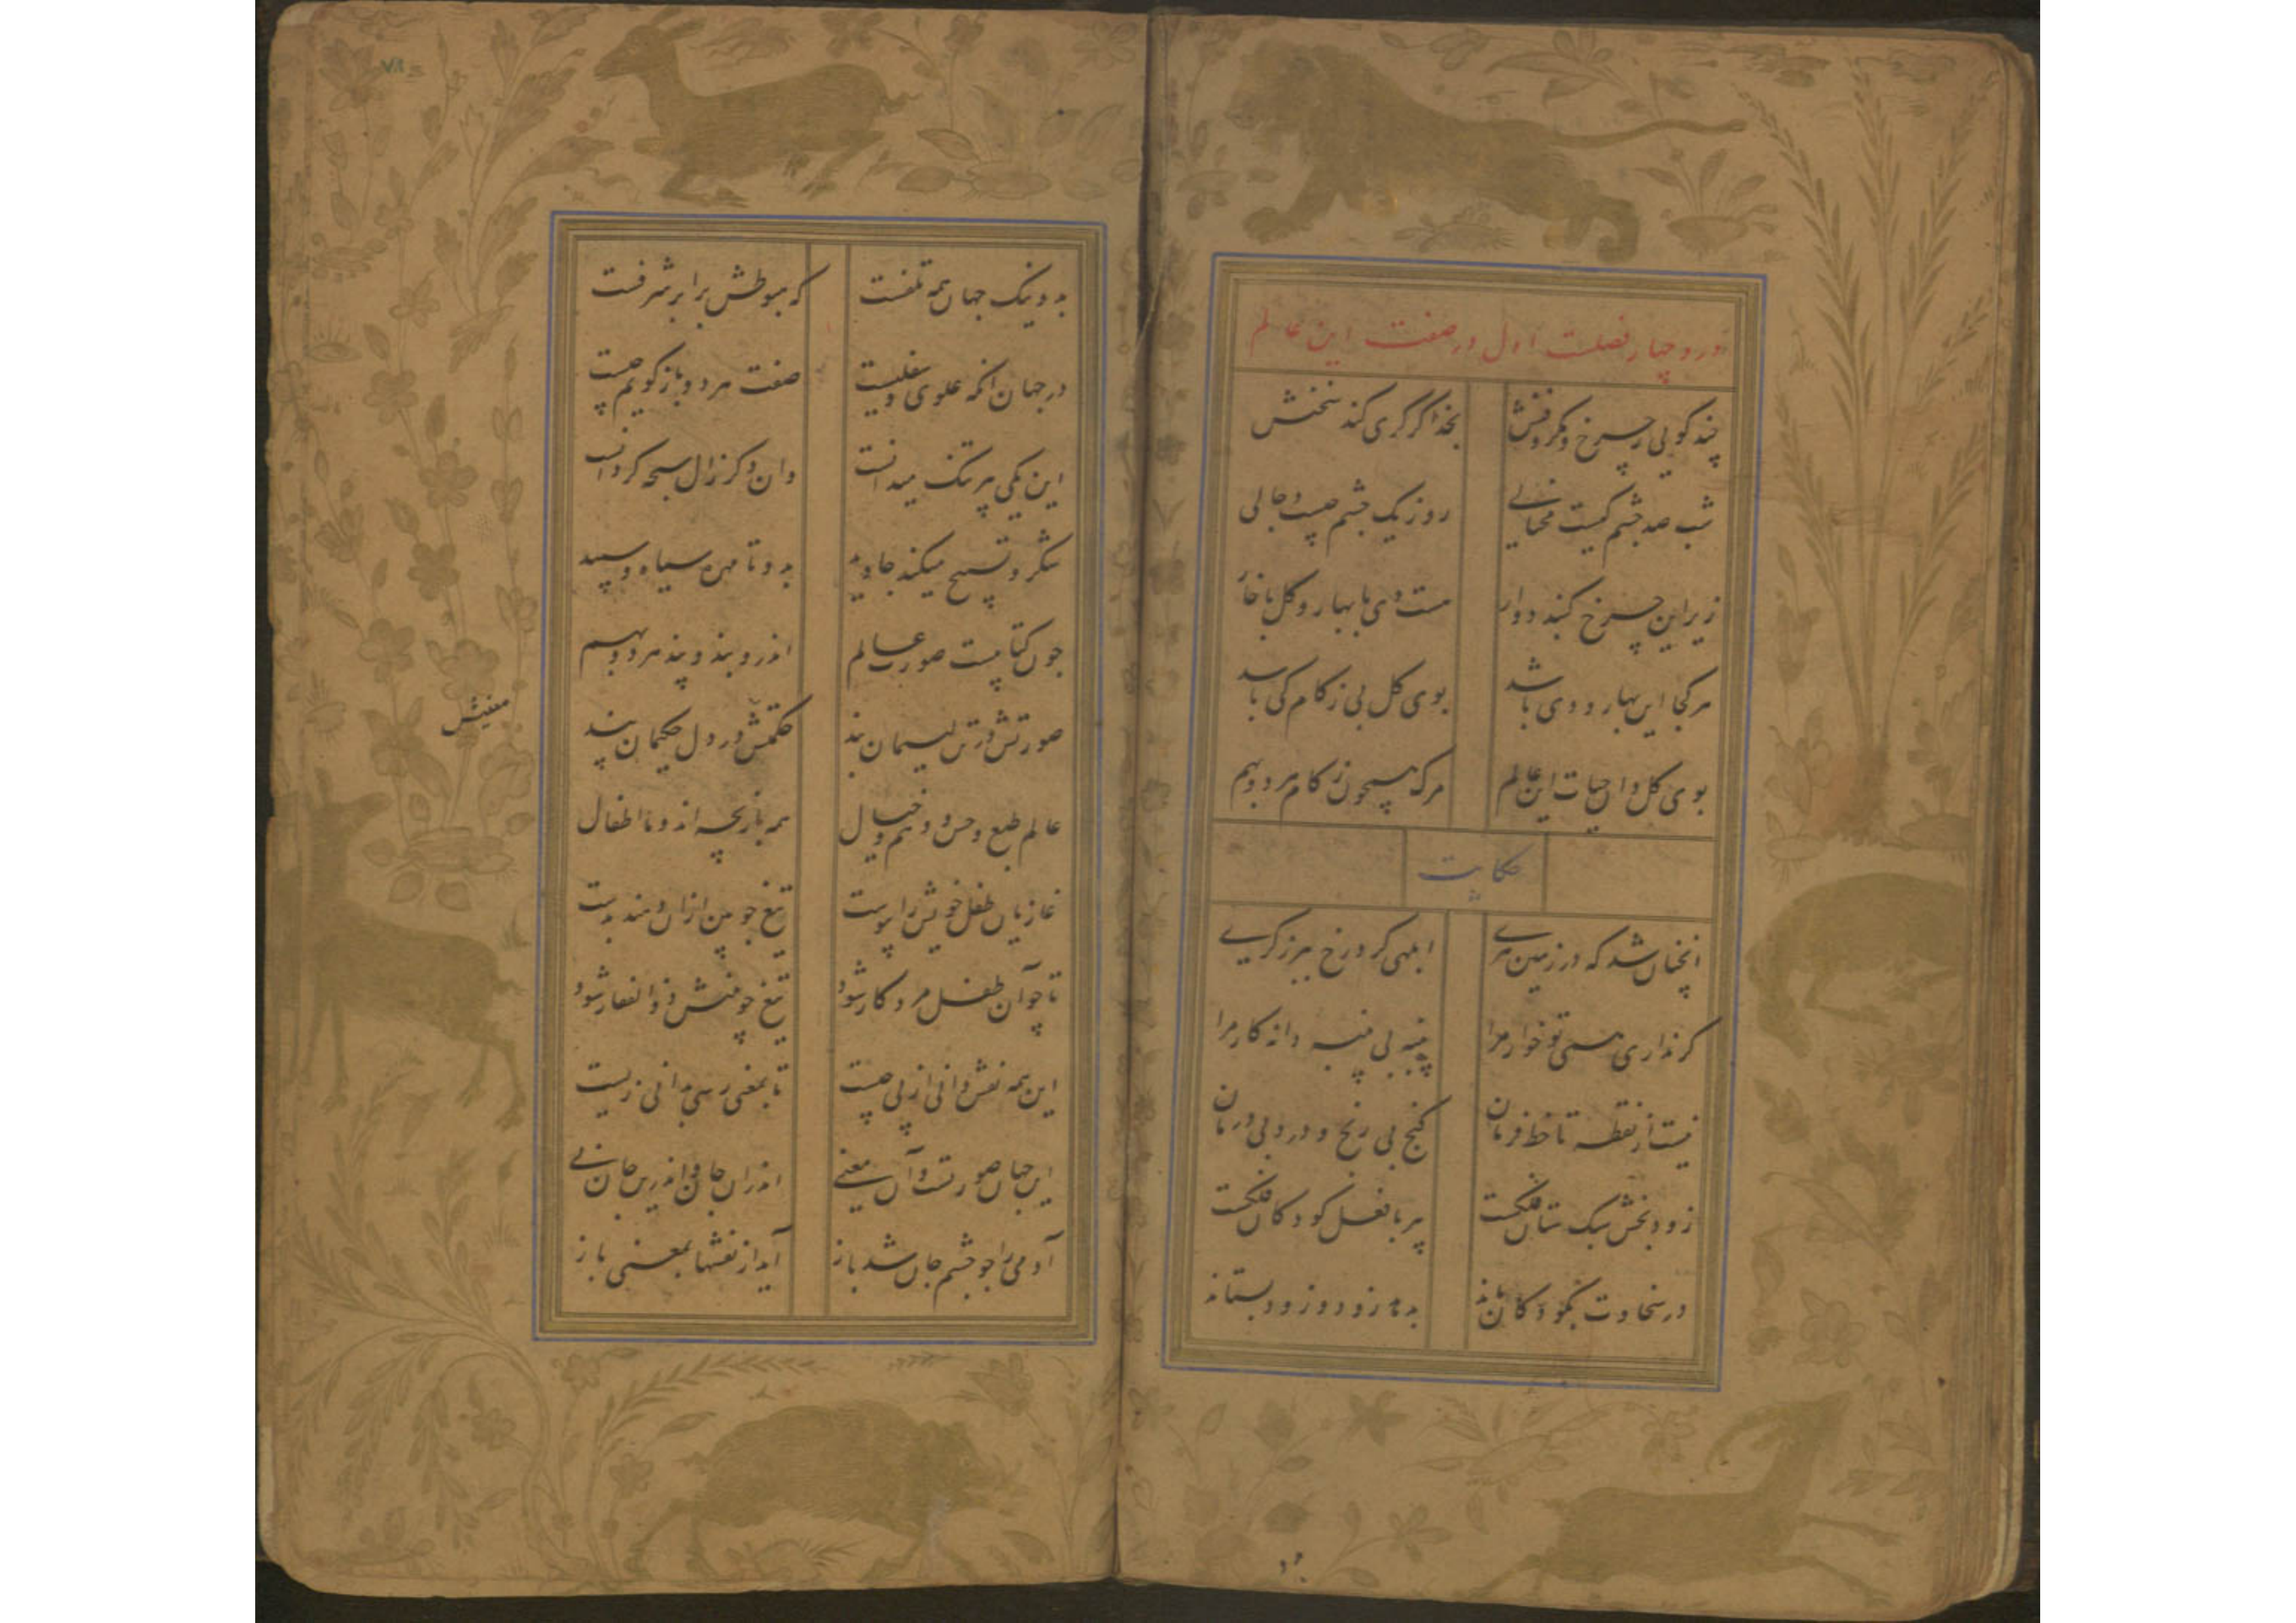 در و چهار فصلست اول در صفت این عالم
چند گویی ز چرخ و مکر و فنش بخدا گر کری کند سخنش
شب صد چشم کیست محتالی روز یک چشم چیست دجالی
زیر این چرخ گنبد دوار هست دی با بهار و گل با خار
هر کجا این بهار و دی باشد بوی گل بی زکام کی باشد
بوی گل دان حیات این عالم مرگ همچون زکام هر دو بهم
حکایت
آنچنان شد که در زمین هری ابلهی کرد رخ ببرزگری
گر نداری همی تو خوار مرا پنبه بی پنبه دانه کار مرا
نیست از نقطه تا خط فرمان گنج بی رنج و درد بی درمان
زود بخش سبک ستان فلکست پیر با فعل کودکان فلکست
در سخاوت بکودکان ماند بدهد زود و زود بستاند
بد و نیک جهان همه تلفست که هبوطش برابر شرفست
در جهان آنکه علوی و سفلیست صفت هر دو باز گویم چیست
این یکی پیر تنگ میدانست وان دگر زال سبحه گردانست
شکر و تسبیح میکند جاوید بدو تا مهره سیاه و سپید
چون کتابیست صورت عالم اندرو بند و پند هر دو بهم
صورتش در تن لئیمان بند حکمتش در دل حکیمان پند
معنیش
عالم طبع و حس و وهم و خیال همه بازیچه اند و ما اطفال
غازیان طفل خویش را پیوست تیغ چوبین ازان دهند بدست
تا چو آن طفل مرد کار شود تیغ چوبینش ذوالفقار شود
این همه نقش دانی از پی چیست تا بمعنی رسی بدانی زیست
این جهان صورتست و آن معنی اندران جان و اندرین جان نی
آدمی را چو چشم جان شد باز آید از نقشها بمعنی باز